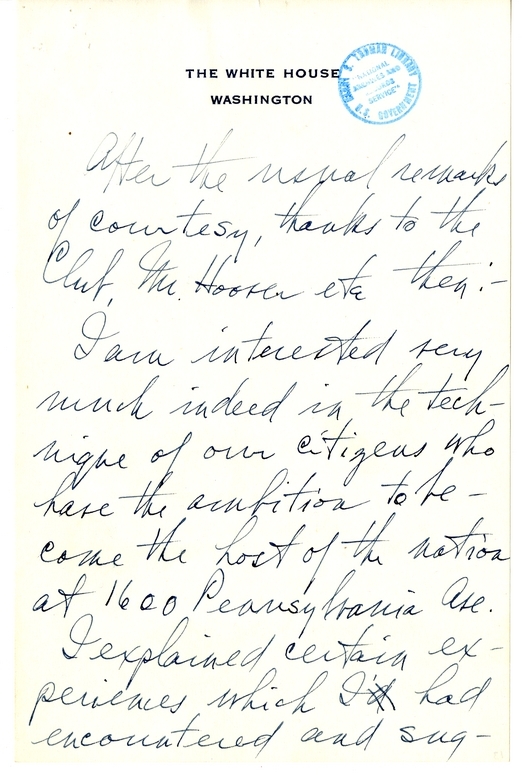 THE WHITE HOUSE
WASHINGTON
HARRY S. TRUMAN LIBRARY
"NATIONAL
ARCHIVES AND
RECORDS
SERVICE"
U.S. GOVERNMENT
After the usual remarks
of courtesy, thanks to the
Club, Mr. Hoover etc then:-
I am interested very
much indeed in the tech-
nique of our citizens who
have the ambition to be-
come the host of the nation
at 1600 Pennsylvania Ave.
I explained certain ex-
periences which I had
encountered and sug-